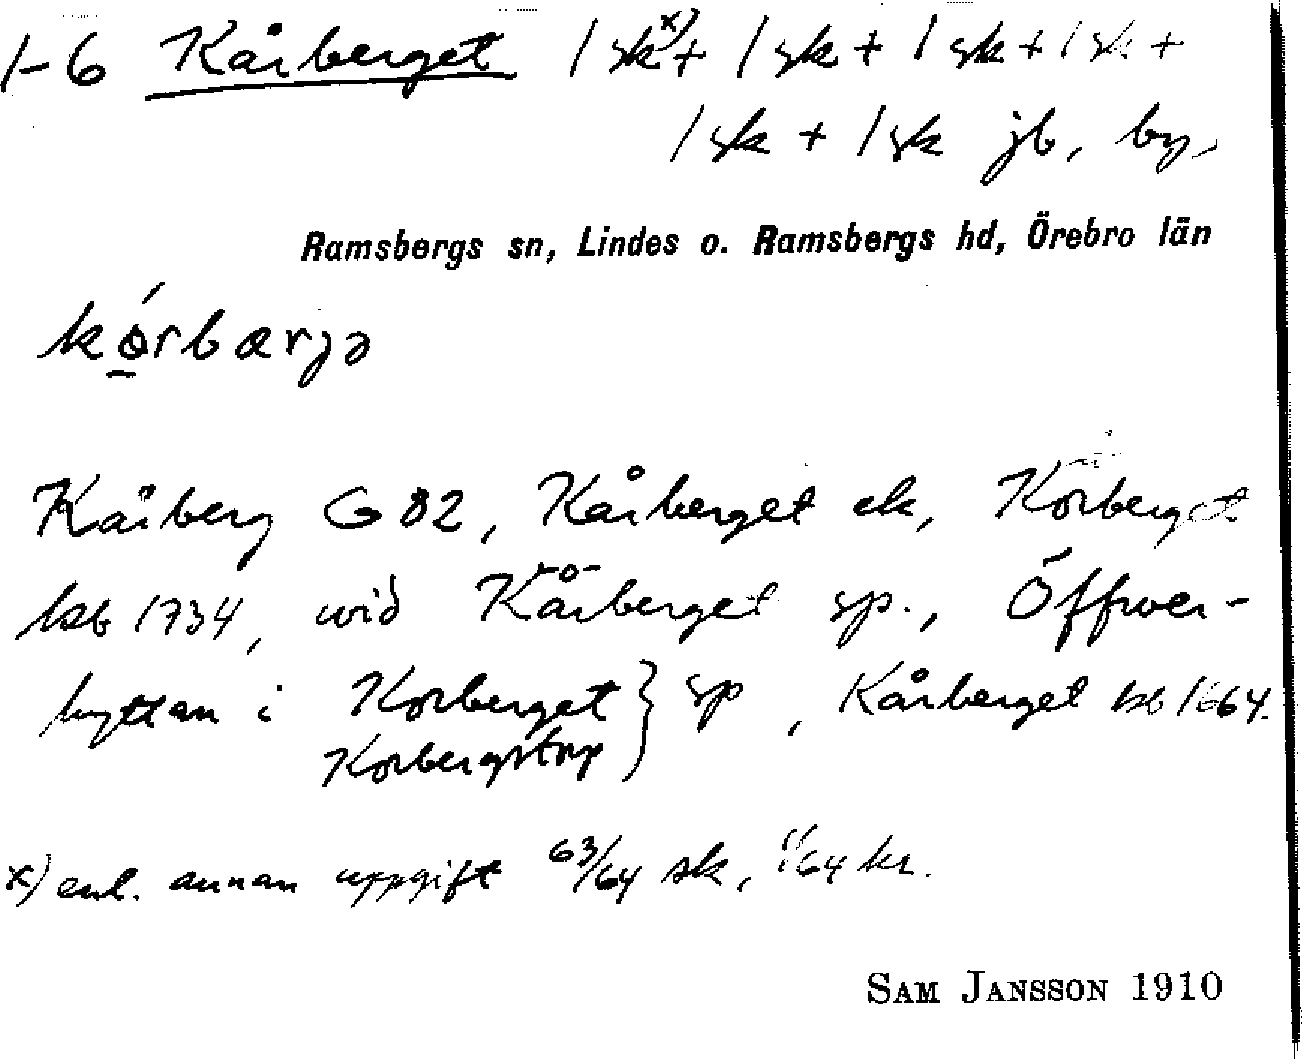 1-6 Kårberget 1 sk x) + 1 sk + 1 sk + 1 sk +
1 sk + 1 sk jb, by,
Ramsbergs sn, Lindes o. Ramsbergs hd, Örebro län
kórbærjə
Kårberg G 82, Kårberget ek, Korberget
kb 1734, wid Kårberget sp., Öffwer-
hyttan i Korberget } sp, Kårberget kb 1664.
Korbergstorp
x) enl. annan uppgift 63/64 sk, 1/64 kr.
SAM JANSSON 1910